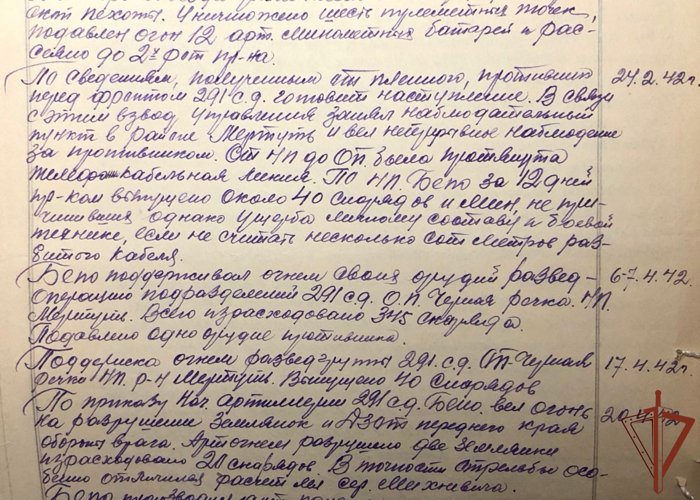 окт пехоты. Уничтожено шесть пулеметных точек,
подавлен огон 12 арт. минометных батарей и рас-
сеяно до 2х рот пр-ка.
По сведениям, полученным от пленного, противник 24.2.42г.
перед фронтом 291 с.д. готовит наступление. В связи
с этим взвод управления занял наблюдательный
пункт в районе Мертуть и вел непрерывное наблюдение
за противником. От НП до ОП была протянута
кабельная линия. По НП. Бепо за 12 дней
пр-ком выпущено около 40 снарядов и мин, не при-
чинивших однако ущерба личному составу и боевой
технике, если не считать несколько сот метров раз-
битого кабеля.
Бепо поддерживал огнем своих орудий развед- 6-7.4.42г.
операцию подразделений 291 с.д. О.П. Черная речка. НП.
Мертуть. Всего израсходовано 345 снаряда.
Подавлено одно орудие противника.
Поддержка огнем разведгруппы 291 с.д. ОП-Черная 17.4.42г.
речка НП. р-н Мертуть. Выпущено 40 снарядов
По приказу Нач. артиллерии 291 с.д. Бепо. вел огонь
на разрушение землянок и ДЗОТ переднего края
обороны врага. Артогнем разрушено две землянки
израсходовано 20 снарядов. В точности стрельбы осо-
бенно отличился расчет мл. сер. Михневича.
Бепо производил